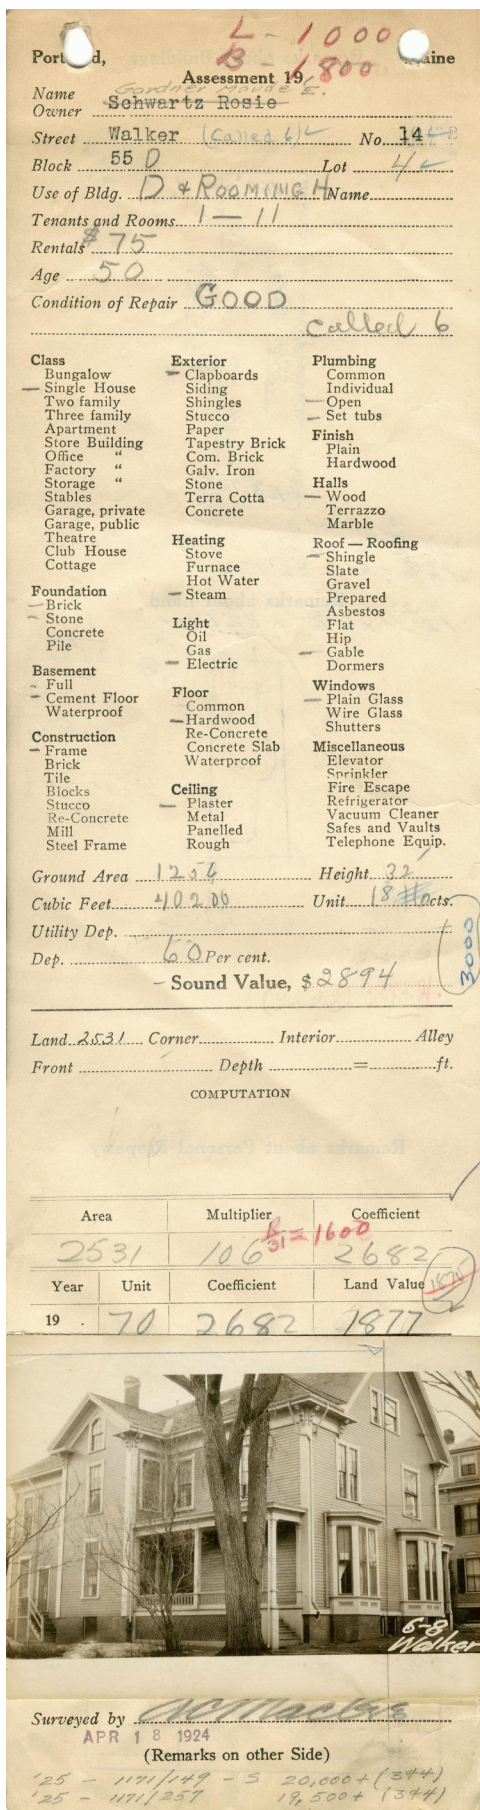 L - 1000
B - 1800
Portland, Maine
Assessment 19
Gardner Maude E.
Name
Owner Schwartz Rosie
Street Walker (Called 6) No. 14
Block 55 D Lot 4
Use of Bldg. D & ROOMING H Name
Tenants and Rooms 1 — 11
Rentals $ 75
Age 50
Condition of Repair GOOD
called 6
Class
Bungalow
Single House
Two family
Three family
Apartment
Store Building
Office "
Factory "
Storage "
Stables
Garage, private
Garage, public
Theatre
Club House
Cottage
Foundation
Brick
Stone
Concrete
Pile
Basement
Full
Cement Floor
Waterproof
Construction
Frame
Brick
Tile
Blocks
Stucco
Re-Concrete
Mill
Steel Frame
Exterior
Clapboards
Siding
Shingles
Stucco
Paper
Tapestry Brick
Com. Brick
Galv. Iron
Stone
Terra Cotta
Concrete
Heating
Stove
Furnace
Hot Water
Steam
Light
Oil
Gas
Electric
Floor
Common
Hardwood
Re-Concrete
Concrete Slab
Waterproof
Ceiling
Plaster
Metal
Panelled
Rough
Plumbing
Common
Individual
Open
Set tubs
Finish
Plain
Hardwood
Halls
Wood
Terrazzo
Marble
Roof — Roofing
Shingle
Slate
Gravel
Prepared
Asbestos
Flat
Hip
Gable
Dormers
Windows
Plain Glass
Wire Glass
Shutters
Miscellaneous
Elevator
Sprinkler
Fire Escape
Refrigerator
Vacuum Cleaner
Safes and Vaults
Telephone Equip.
Ground Area 1256 Height 32'
Cubic Feet 40200 Unit 18 cts.
Utility Dep.
Dep. 60 Per cent.
3000
Sound Value, $ 2894
Land 2531 Corner Interior Alley
Front Depth = ft.
COMPUTATION
Area Multiplier Coefficient
31 = 1600
2531 106 2682
Year Unit Coefficient Land Value 1875
19 . 70 2682 1877
6-8
Walker
Surveyed by
APR 18 1924
(Remarks on other Side)
'25 - 1171/149 - S 20,000 + (344)
'25 - 1171/257 19,500 + (344)